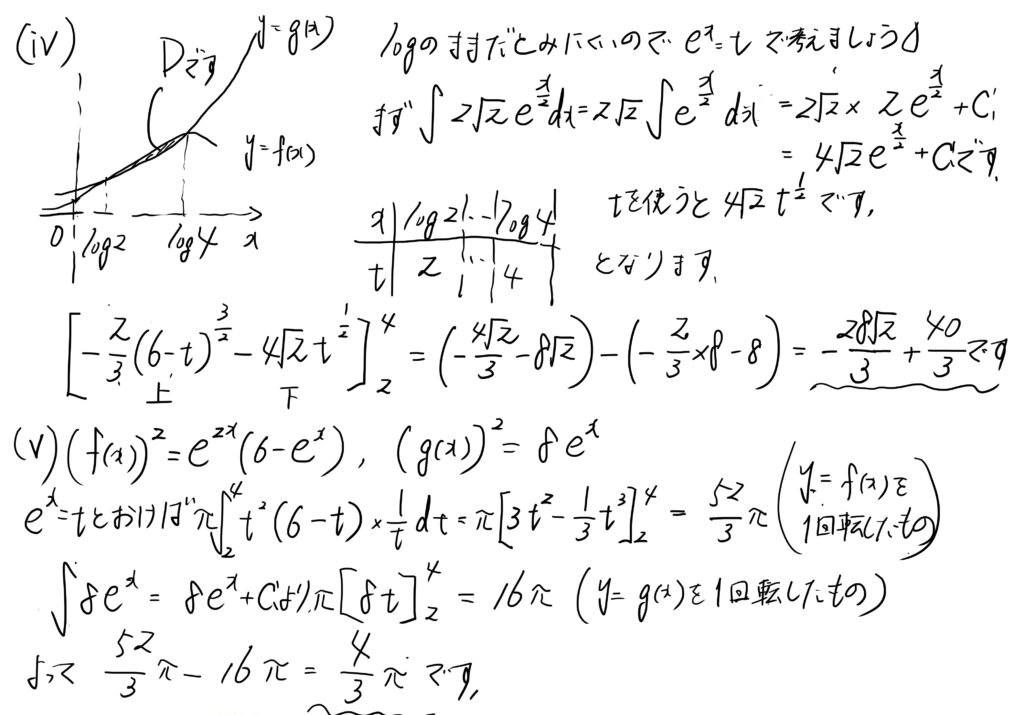 (iv)
y=g(x)
Dです
y=f(x)
0 log2 log4 x
logのままだとみにくいので e^x=t で考えましょう
まず ∫2√2 e^{x/2}dx=2√2 ∫e^{x/2} dx =2√2 × 2e^{x/2}+C
= 4√2e^{x/2}+Cです。
tを使うと 4√2 t^{1/2} です。
x | log2 | … | log4
t | 2 | … | 4
となります。
[-2/3(6-t)^{3/2} - 4√2 t^{1/2}]_2^4 = (-4√2/3 - 8√2) - (-2/3×8-8) = -28√2/3 + 40/3 です
上 下
(v) (f(x))^2=e^{2x}(6-e^x), (g(x))^2= 8e^x
e^x=tとおけば π∫_2^4 t^2(6-t)×1/t dt=π[3t^2-1/3t^3]_2^4 = 52/3 π (y=f(x)を1回転したもの)
∫8e^x = 8e^x+Cより π[8t]_2^4 = 16π (y=g(x)を1回転したもの)
よって 52/3 π - 16π = 4/3 π です。